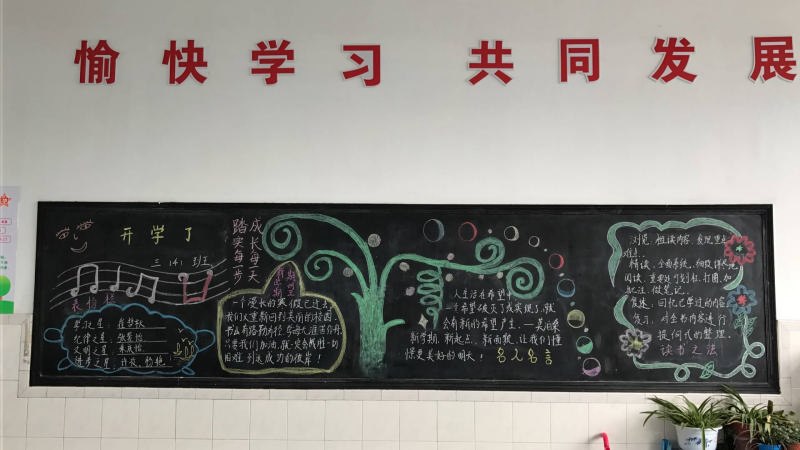 愉快学习 共同发展
开学了
三 141 班
表扬栏
学习之星：
纪律之星：
文明之星：
进步之星：
成长每一天
踏实每一步
一个漫长的寒假已过去，
我们又重新回到美丽的校园。
只要我们加油，就一定会战胜一切
困难到达成功的彼岸！
人生活在希望中，
一个希望破灭了或实现了，就
会有新的希望产生。
新学期，新起点，新面貌，让我们憧
憬更美好的明天！
名人名言
浏览：粗读内容，发现重点
难点。
精读：全面系统，细致详尽地
阅读，重要处可划杠、打圈、加
批注、做笔记。
复述：回忆已学过的内容
复习：对全书内容进行
提问式的整理。
读书之法